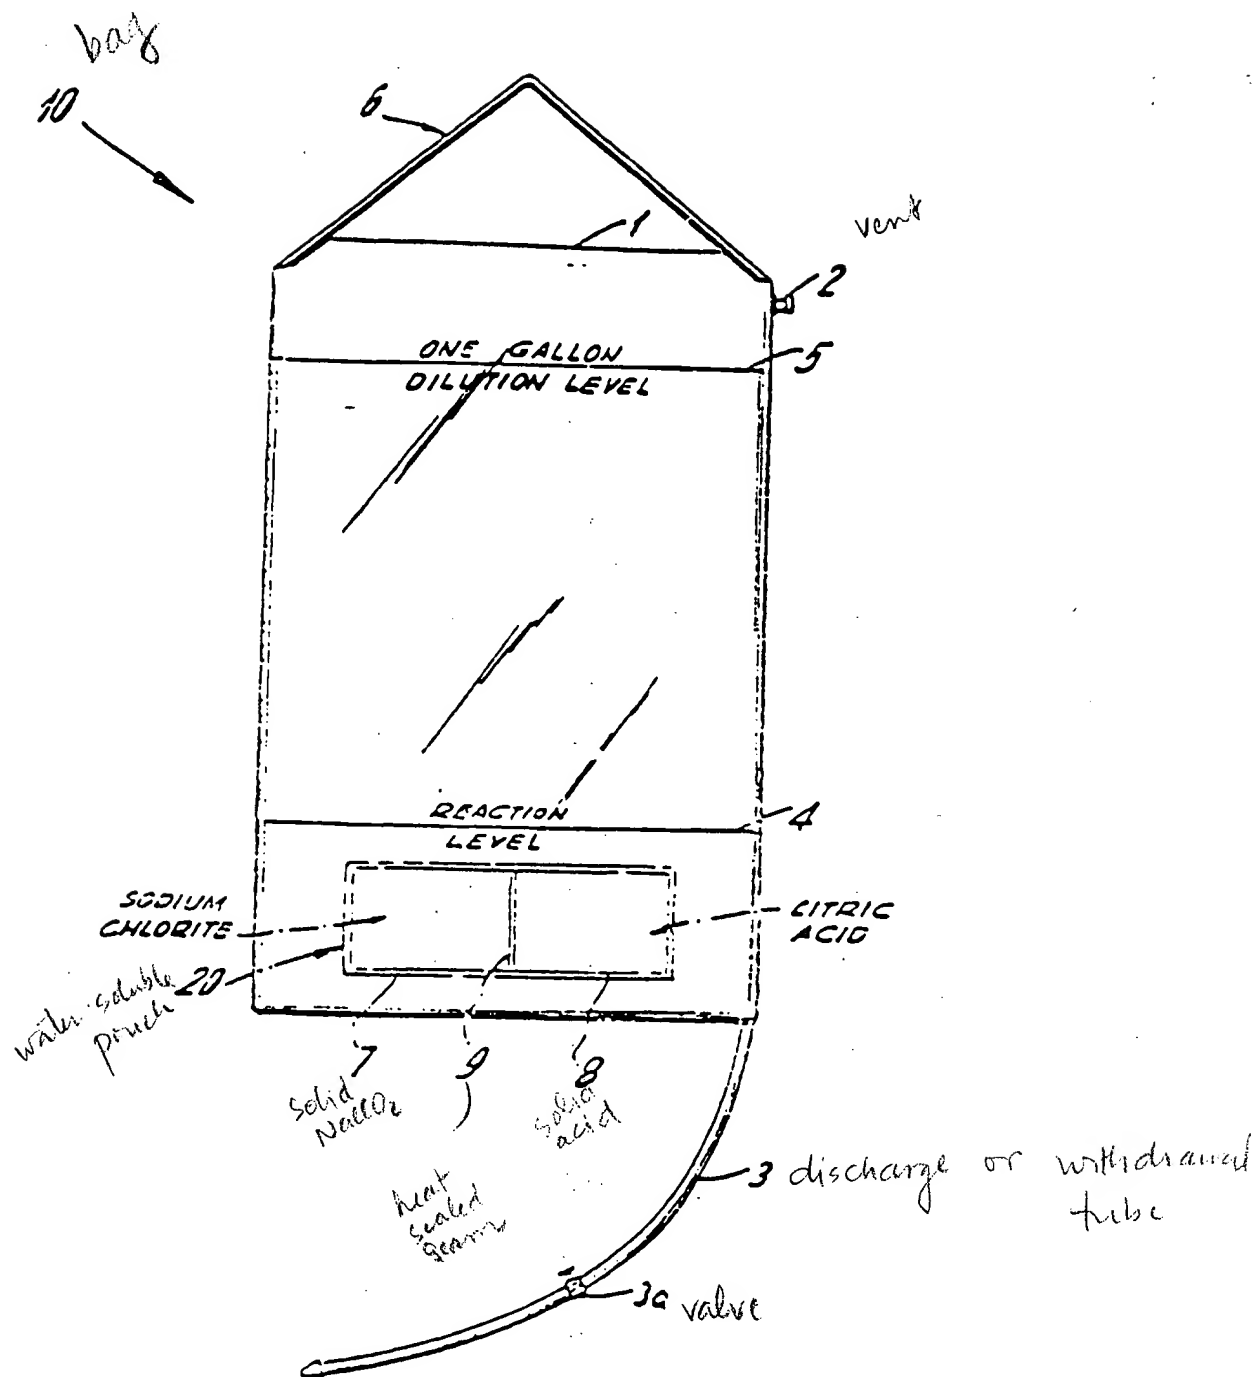 bag
10
6
1
vent
2
ONE GALLON
5
DILUTION LEVEL
REACTION
4
LEVEL
SODIUM
CHLORITE
CITRIC
ACID
20
water soluble
pouch
7
9
8
solid
NaClO2
solid
acid
heat
sealed
seam
3 discharge or withdrawal
tube
3a valve